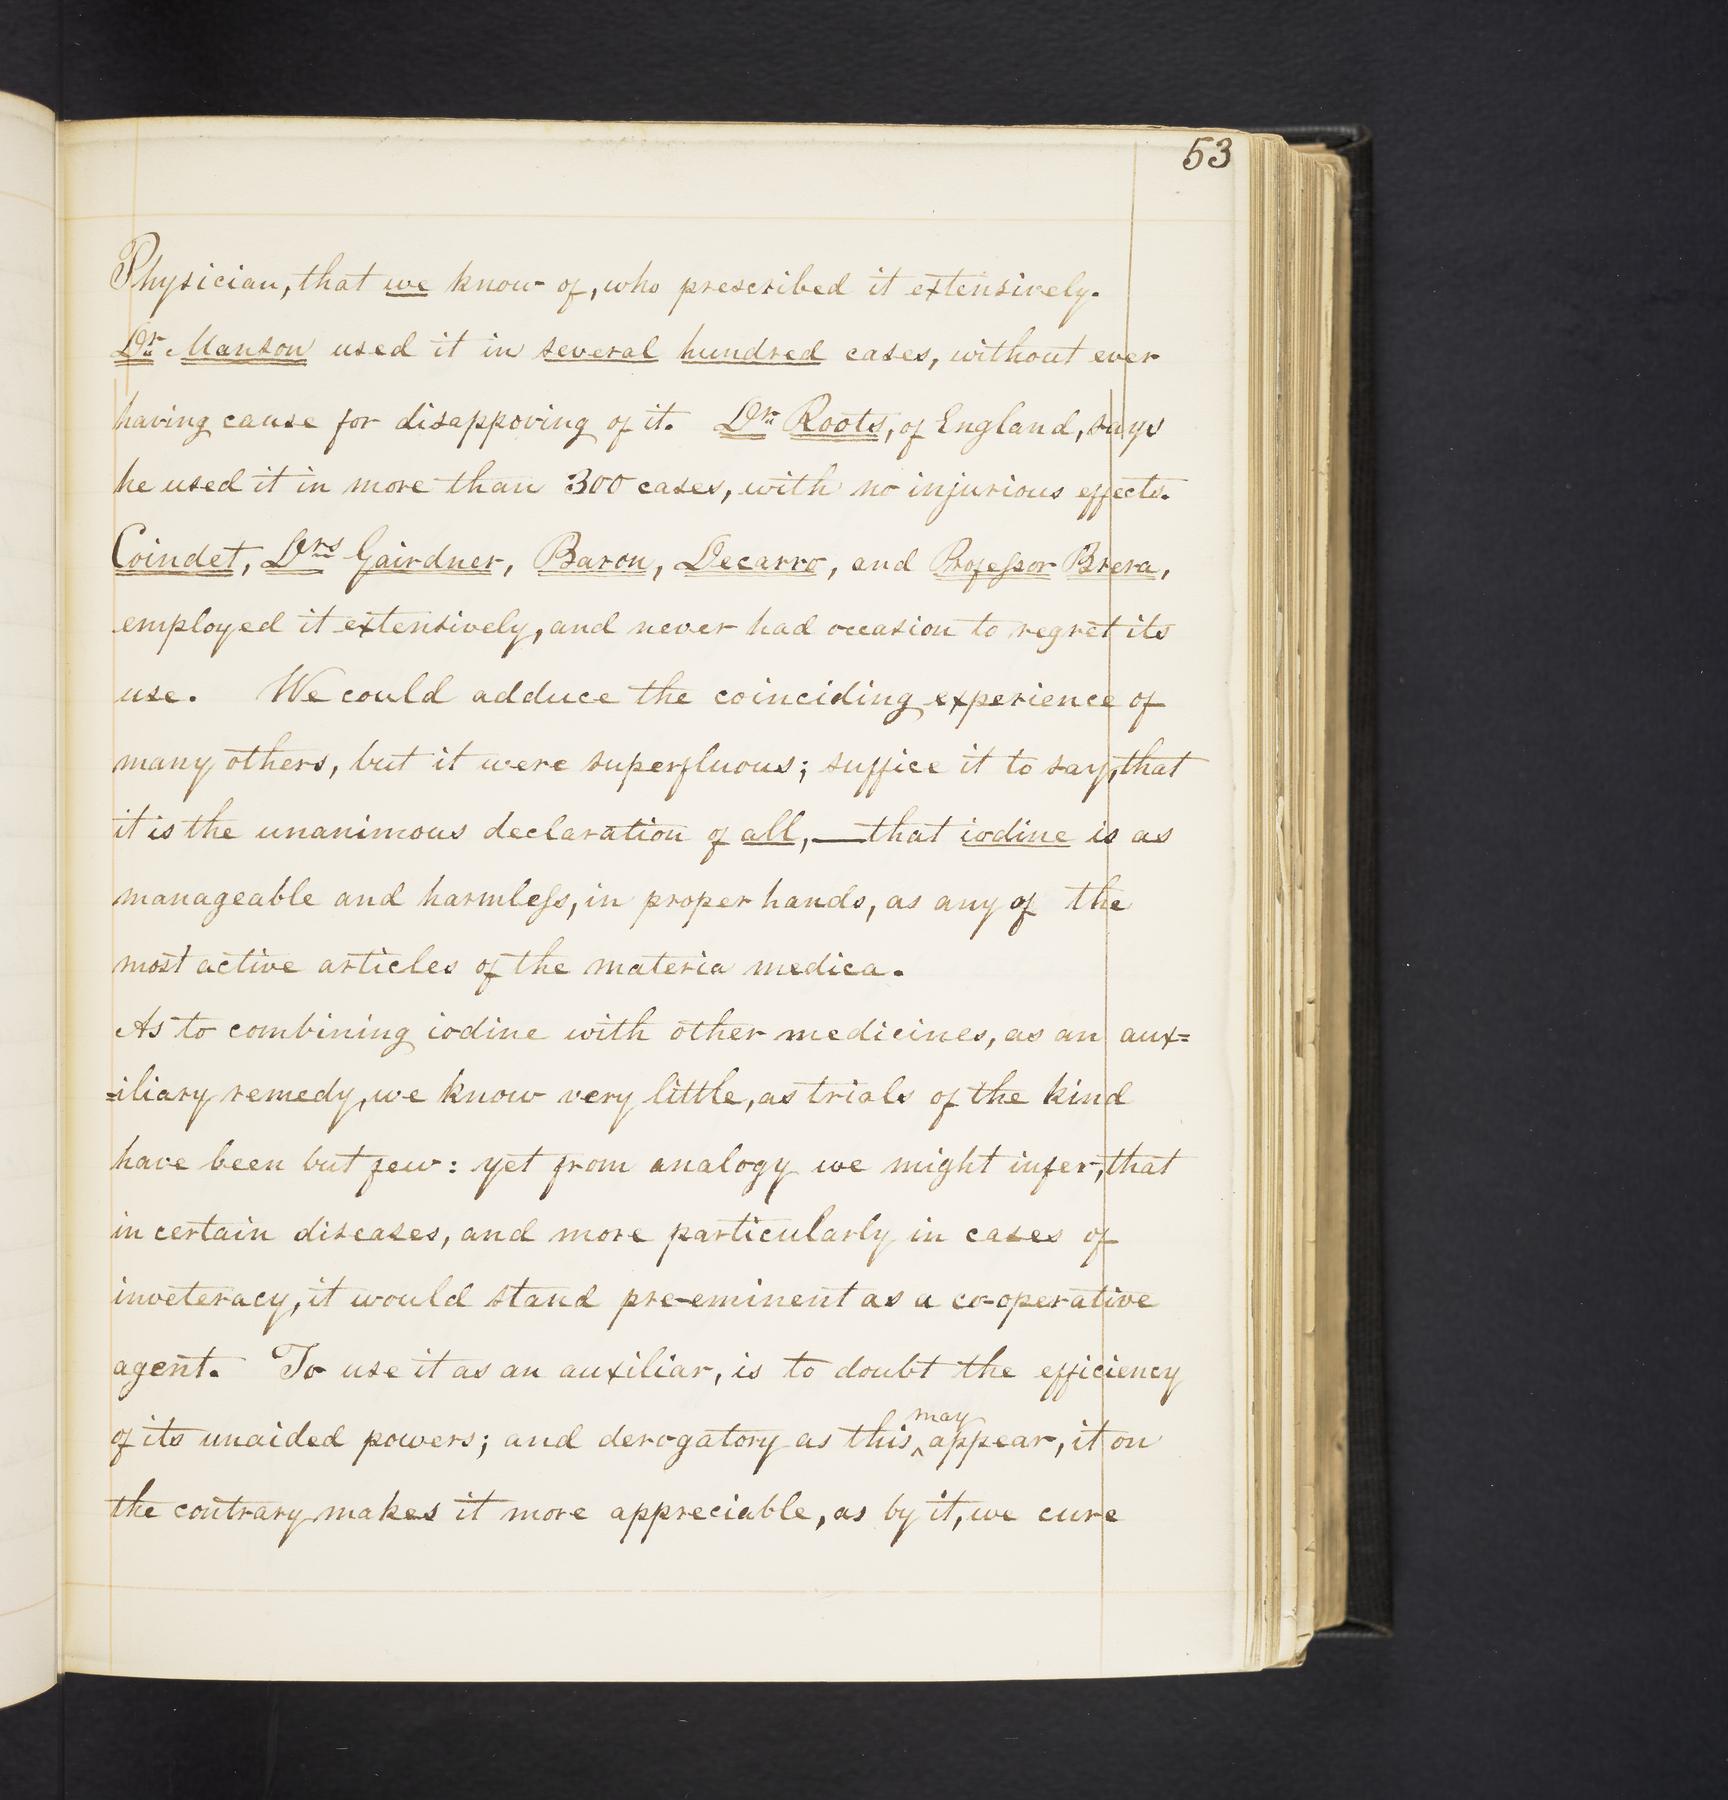 53
Physician, that we know of, who prescribed it extensively.
Dr. Manson used it in several hundred cases, without ever
having cause for disappoving of it. Dr. Roots, of England, says
he used it in more than 300 cases, with no injurious effects.
Coindet, Drs Gairdner, Baron, Decarro, and Professor Brera,
employed it extensively, and never had occasion to regret its
use. We could adduce the coinciding experience of
many others, but it were superfluous; suffice it to say, that
it is the unanimous declaration of all, — that iodine is as
manageable and harmless, in proper hands, as any of the
most active articles of the materia medica.
As to combining iodine with other medicines, as an aux=
=iliary remedy, we know very little, as trials of the kind
have been but few: yet from analogy we might infer, that
in certain diseases, and more particularly in cases of
inveteracy, it would stand pre-eminent as a co-operative
agent. To use it as an auxiliar, is to doubt the efficiency
of its unaided powers; and derogatory as this may appear, it on
the contrary makes it more appreciable, as by it, we cure